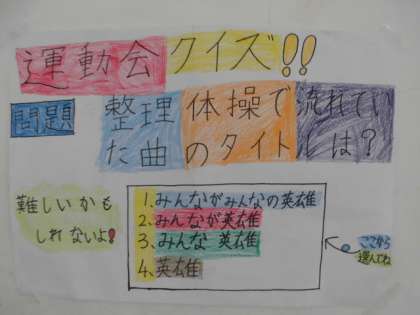 運動会クイズ!!
問題 整理体操で流れてい
た曲のタイトルは?
難しいかも
しれないよ!
1.みんながみんなの英雄
2.みんなが英雄
3.みんな 英雄
4.英雄
ここから
選んでね